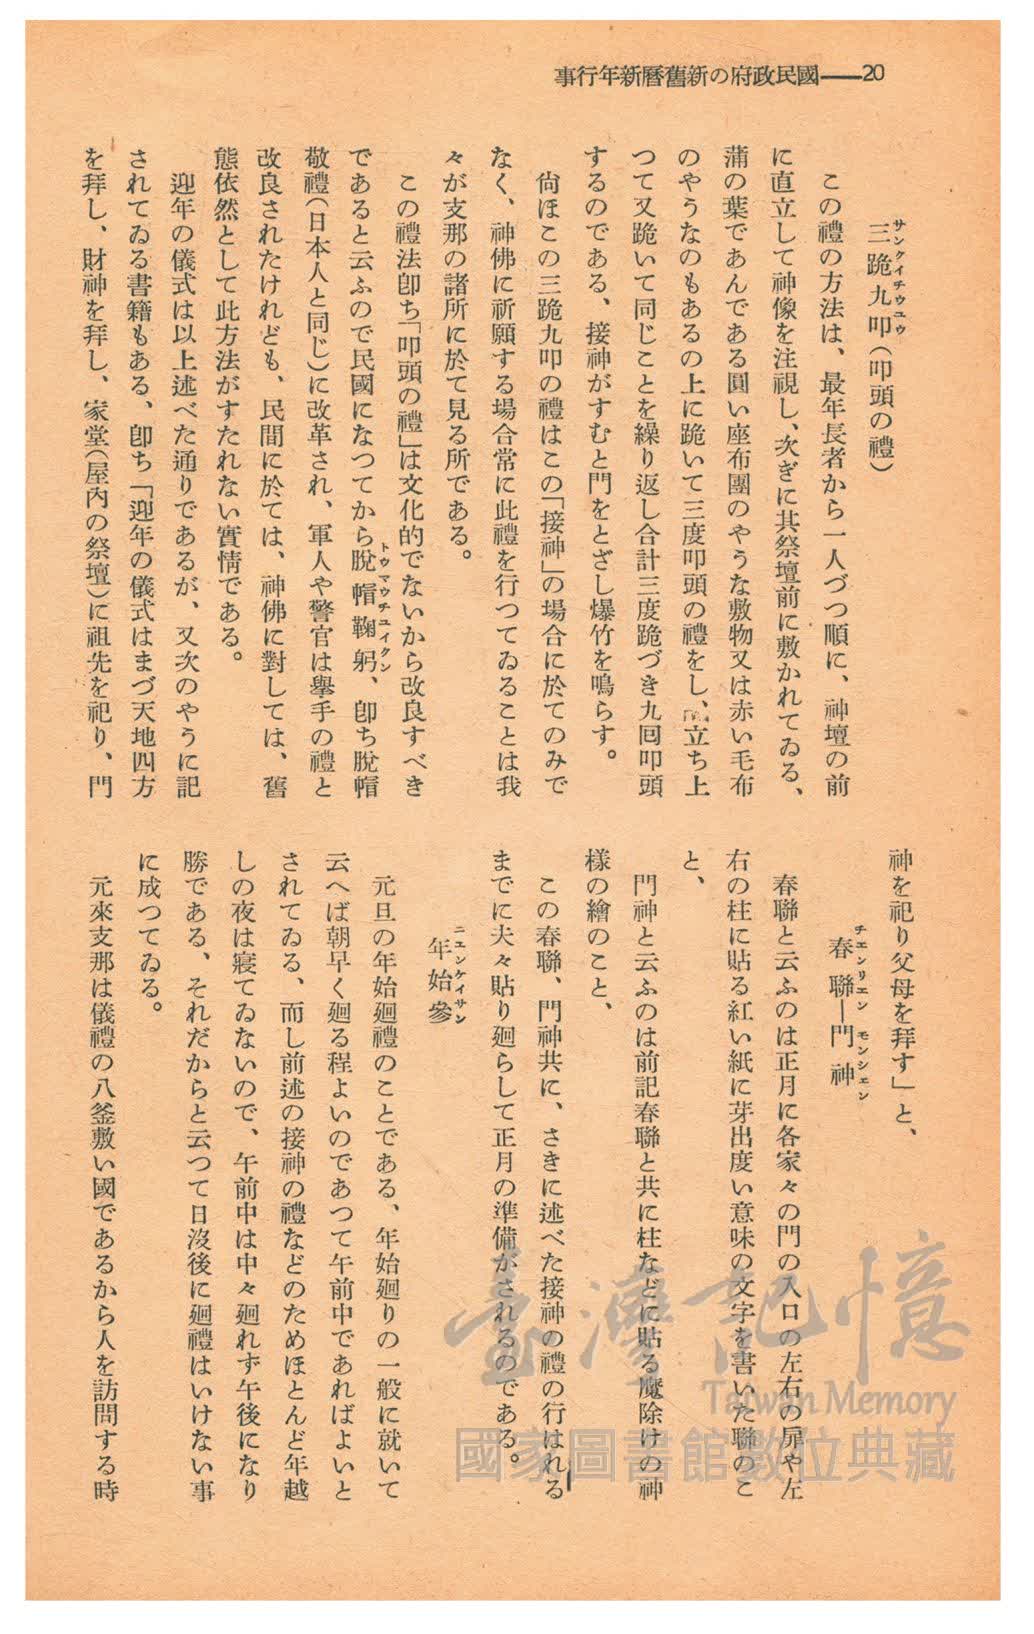 事行年新曆舊新の府政民國——20
三跪九叩（叩頭の禮）
サンクイチウユウ
この禮の方法は、最年長者から一人づつ順に、神壇の前
に直立して神像を注視し、次ぎに其祭壇前に敷かれてゐる、
蒲の葉であんである圓い座布團のやうな敷物又は赤い毛布
のやうなのもあるの上に跪いて三度叩頭の禮をし、立ち上
つて又跪いて同じことを繰り返し合計三度跪づき九回叩頭
するのである、接神がすむと門をとざし爆竹を鳴らす。
尙ほこの三跪九叩の禮はこの「接神」の場合に於てのみで
なく、神佛に祈願する場合常に此禮を行つてゐることは我
々が支那の諸所に於て見る所である。
この禮法卽ち「叩頭の禮」は文化的でないから改良すべき
であると云ふので民國になつてから脫帽鞠躬、卽ち脫帽
トウマウチユイクン
敬禮（日本人と同じ）に改革され、軍人や警官は擧手の禮と
改良されたけれども、民間に於ては、神佛に對しては、舊
態依然として此方法がすたれない實情である。
迎年の儀式は以上述べた通りであるが、又次のやうに記
されてゐる書籍もある、卽ち「迎年の儀式はまづ天地四方
を拜し、財神を拜し、家堂（屋內の祭壇）に祖先を祀り、門
神を祀り父母を拜す」と、
春聯—門神
チエンリエン モンシエン
春聯と云ふのは正月に各家々の門の入口の左右の扉や左
右の柱に貼る紅い紙に芽出度い意味の文字を書いた聯のこ
と、
門神と云ふのは前記春聯と共に柱などに貼る魔除けの神
樣の繪のこと、
この春聯、門神共に、さきに述べた接神の禮の行はれる
までに夫々貼り廻らして正月の準備がされるのである。
年始參
ニエンケイサン
元旦の年始廻禮のことである、年始廻りの一般に就いて
云へば朝早く廻る程よいのであつて午前中であればよいと
されてゐる、而し前述の接神の禮などのためほとんど年越
しの夜は寢てゐないので、午前中は中々廻れず午後になり
勝である、それだからと云つて日沒後に廻禮はいけない事
に成つてゐる。
元來支那は儀禮の八釜敷い國であるから人を訪問する時
臺灣記憶
Taiwan Memory
國家圖書館數位典藏